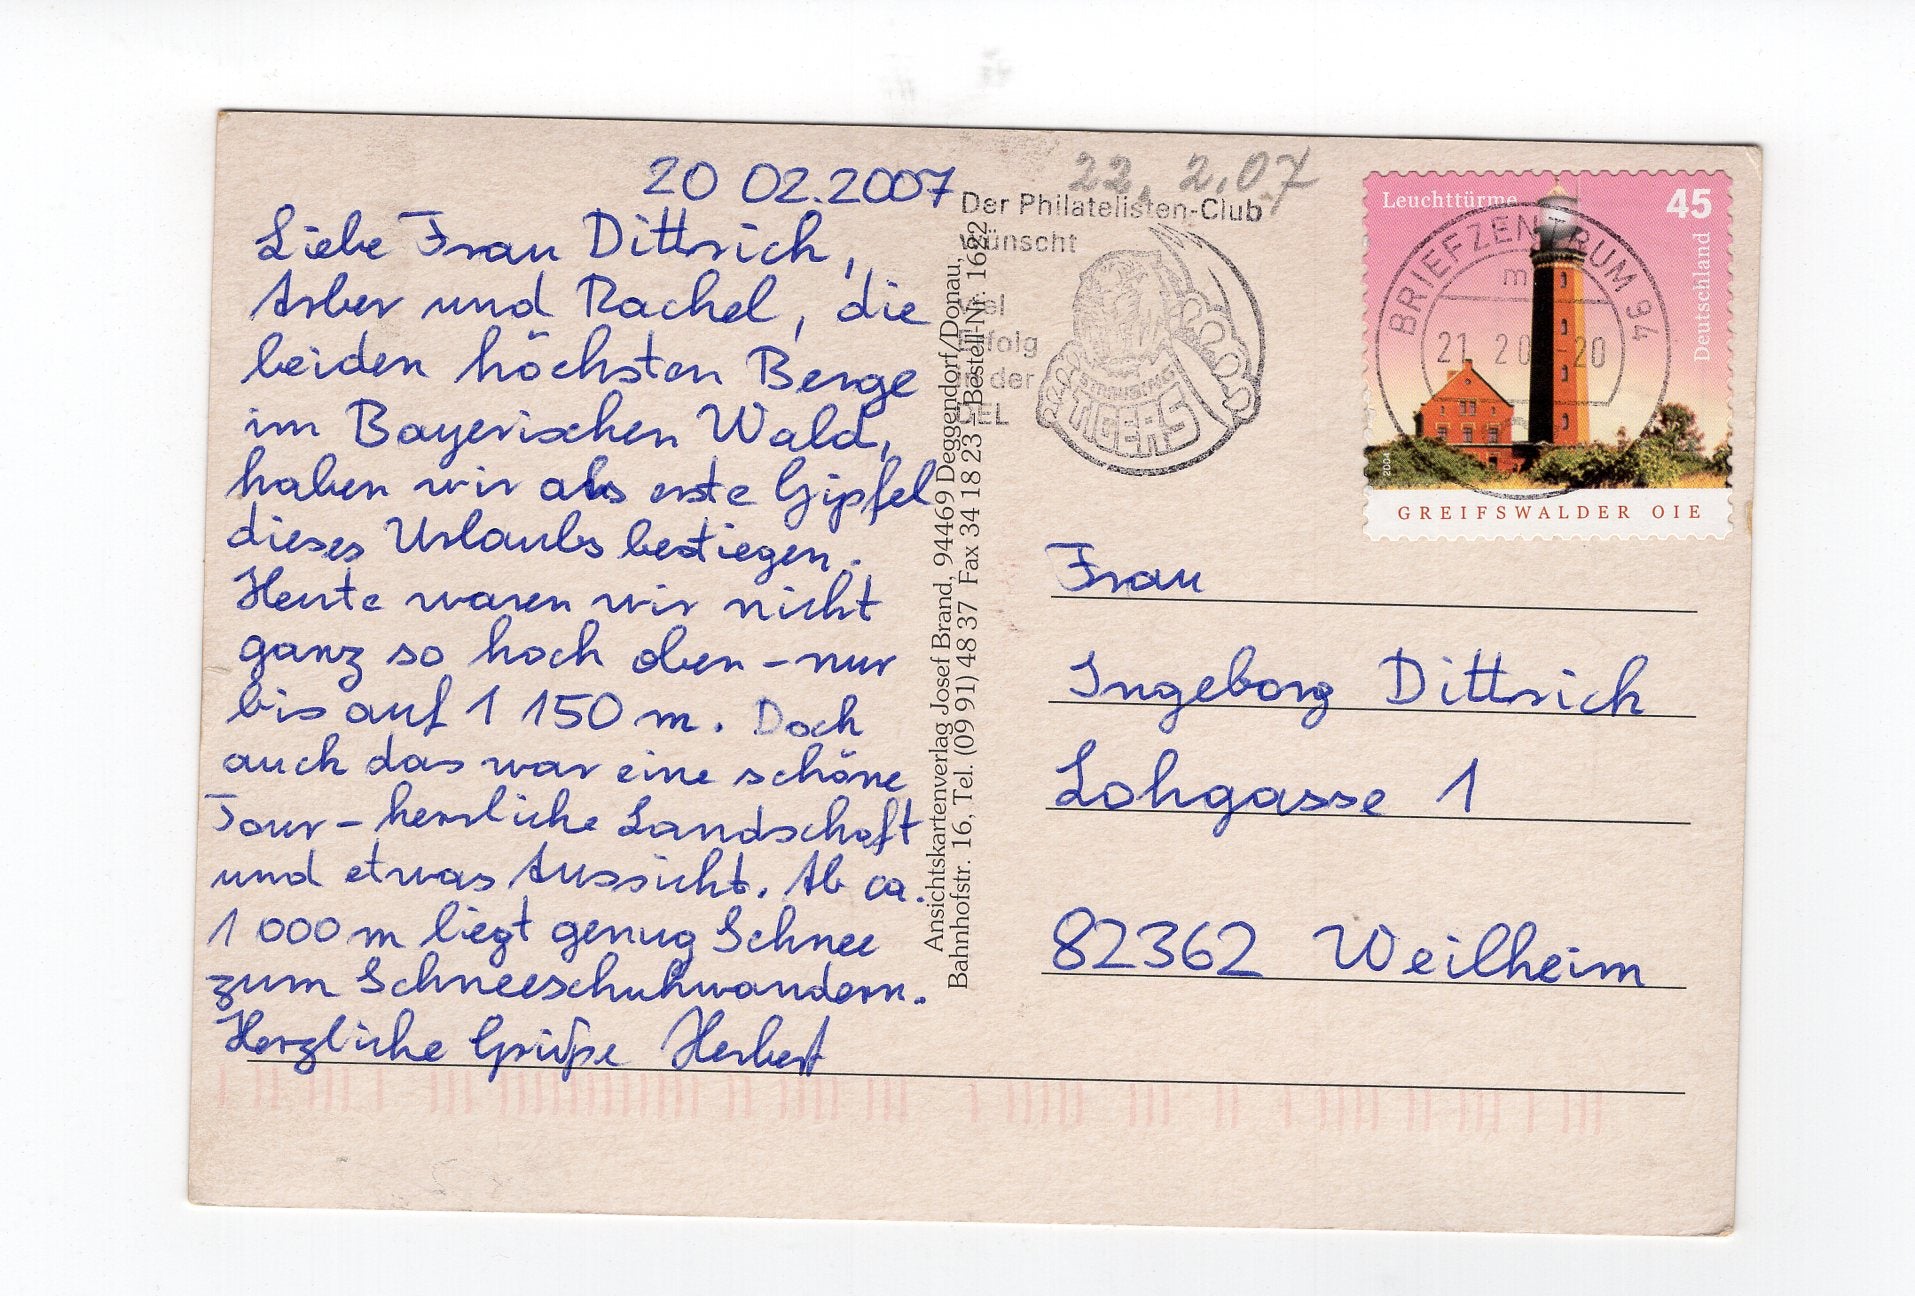 20 02.2007
Liebe Frau Dittrich,
Arber und Rachel, die
beiden höchsten Berge
im Bayerischen Wald,
haben wir als erste Gipfel
dieses Urlaubs bestiegen.
Heute waren wir nicht
ganz so hoch oben - nur
bis auf 1 150 m. Doch
auch das war eine schöne
Tour - herrliche Landschaft
und etwas Aussicht. Ab ca.
1 000 m liegt genug Schnee
zum Schneeschuhwandern.
Herzliche Grüße Herbert
Ansichtskartenverlag Josef Brand, 94469 Deggendorf/Donau,
Bahnhofstr. 16, Tel. (09 91) 48 37 Fax 34 18 23 - Bestell-Nr. 1622
22. 2.07
Der Philatelisten-Club
wünscht
viel
Erfolg
in der
DEL
STRAUBING
TIGERS
Leuchttürme
45
Deutschland
2004
GREIFSWALDER OIE
BRIEFZENTRUM 94
m
21 2 0 -20
Frau
Ingeborg Dittrich
Lohgasse 1
82362 Weilheim